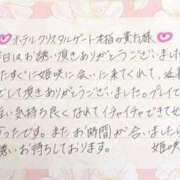 ホテルクリスタルゲート本栖の貴方様
日はお誘い頂きありがとうございました
たすぐに姫咲に会いに来てくれて、
して頂きありがとうございました。プレイで
い気持ち良くなれてイチャイチャできて
ったです。またお時間が合いましたら
誘いお待ちしております。
姫咲